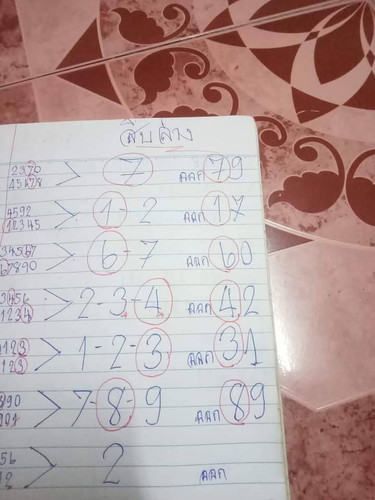 สิบล่าง
2370
45678 > 7 ออก 79
4592
12345 > 1-2 ออก 17
34567
67890 > 6-7 ออก 60
3456
1234 > 2-3-4 ออก 42
0123
123 > 1-2-3 ออก 31
890
901 > 7-8-9 ออก 89
56
12 > 2 ออก